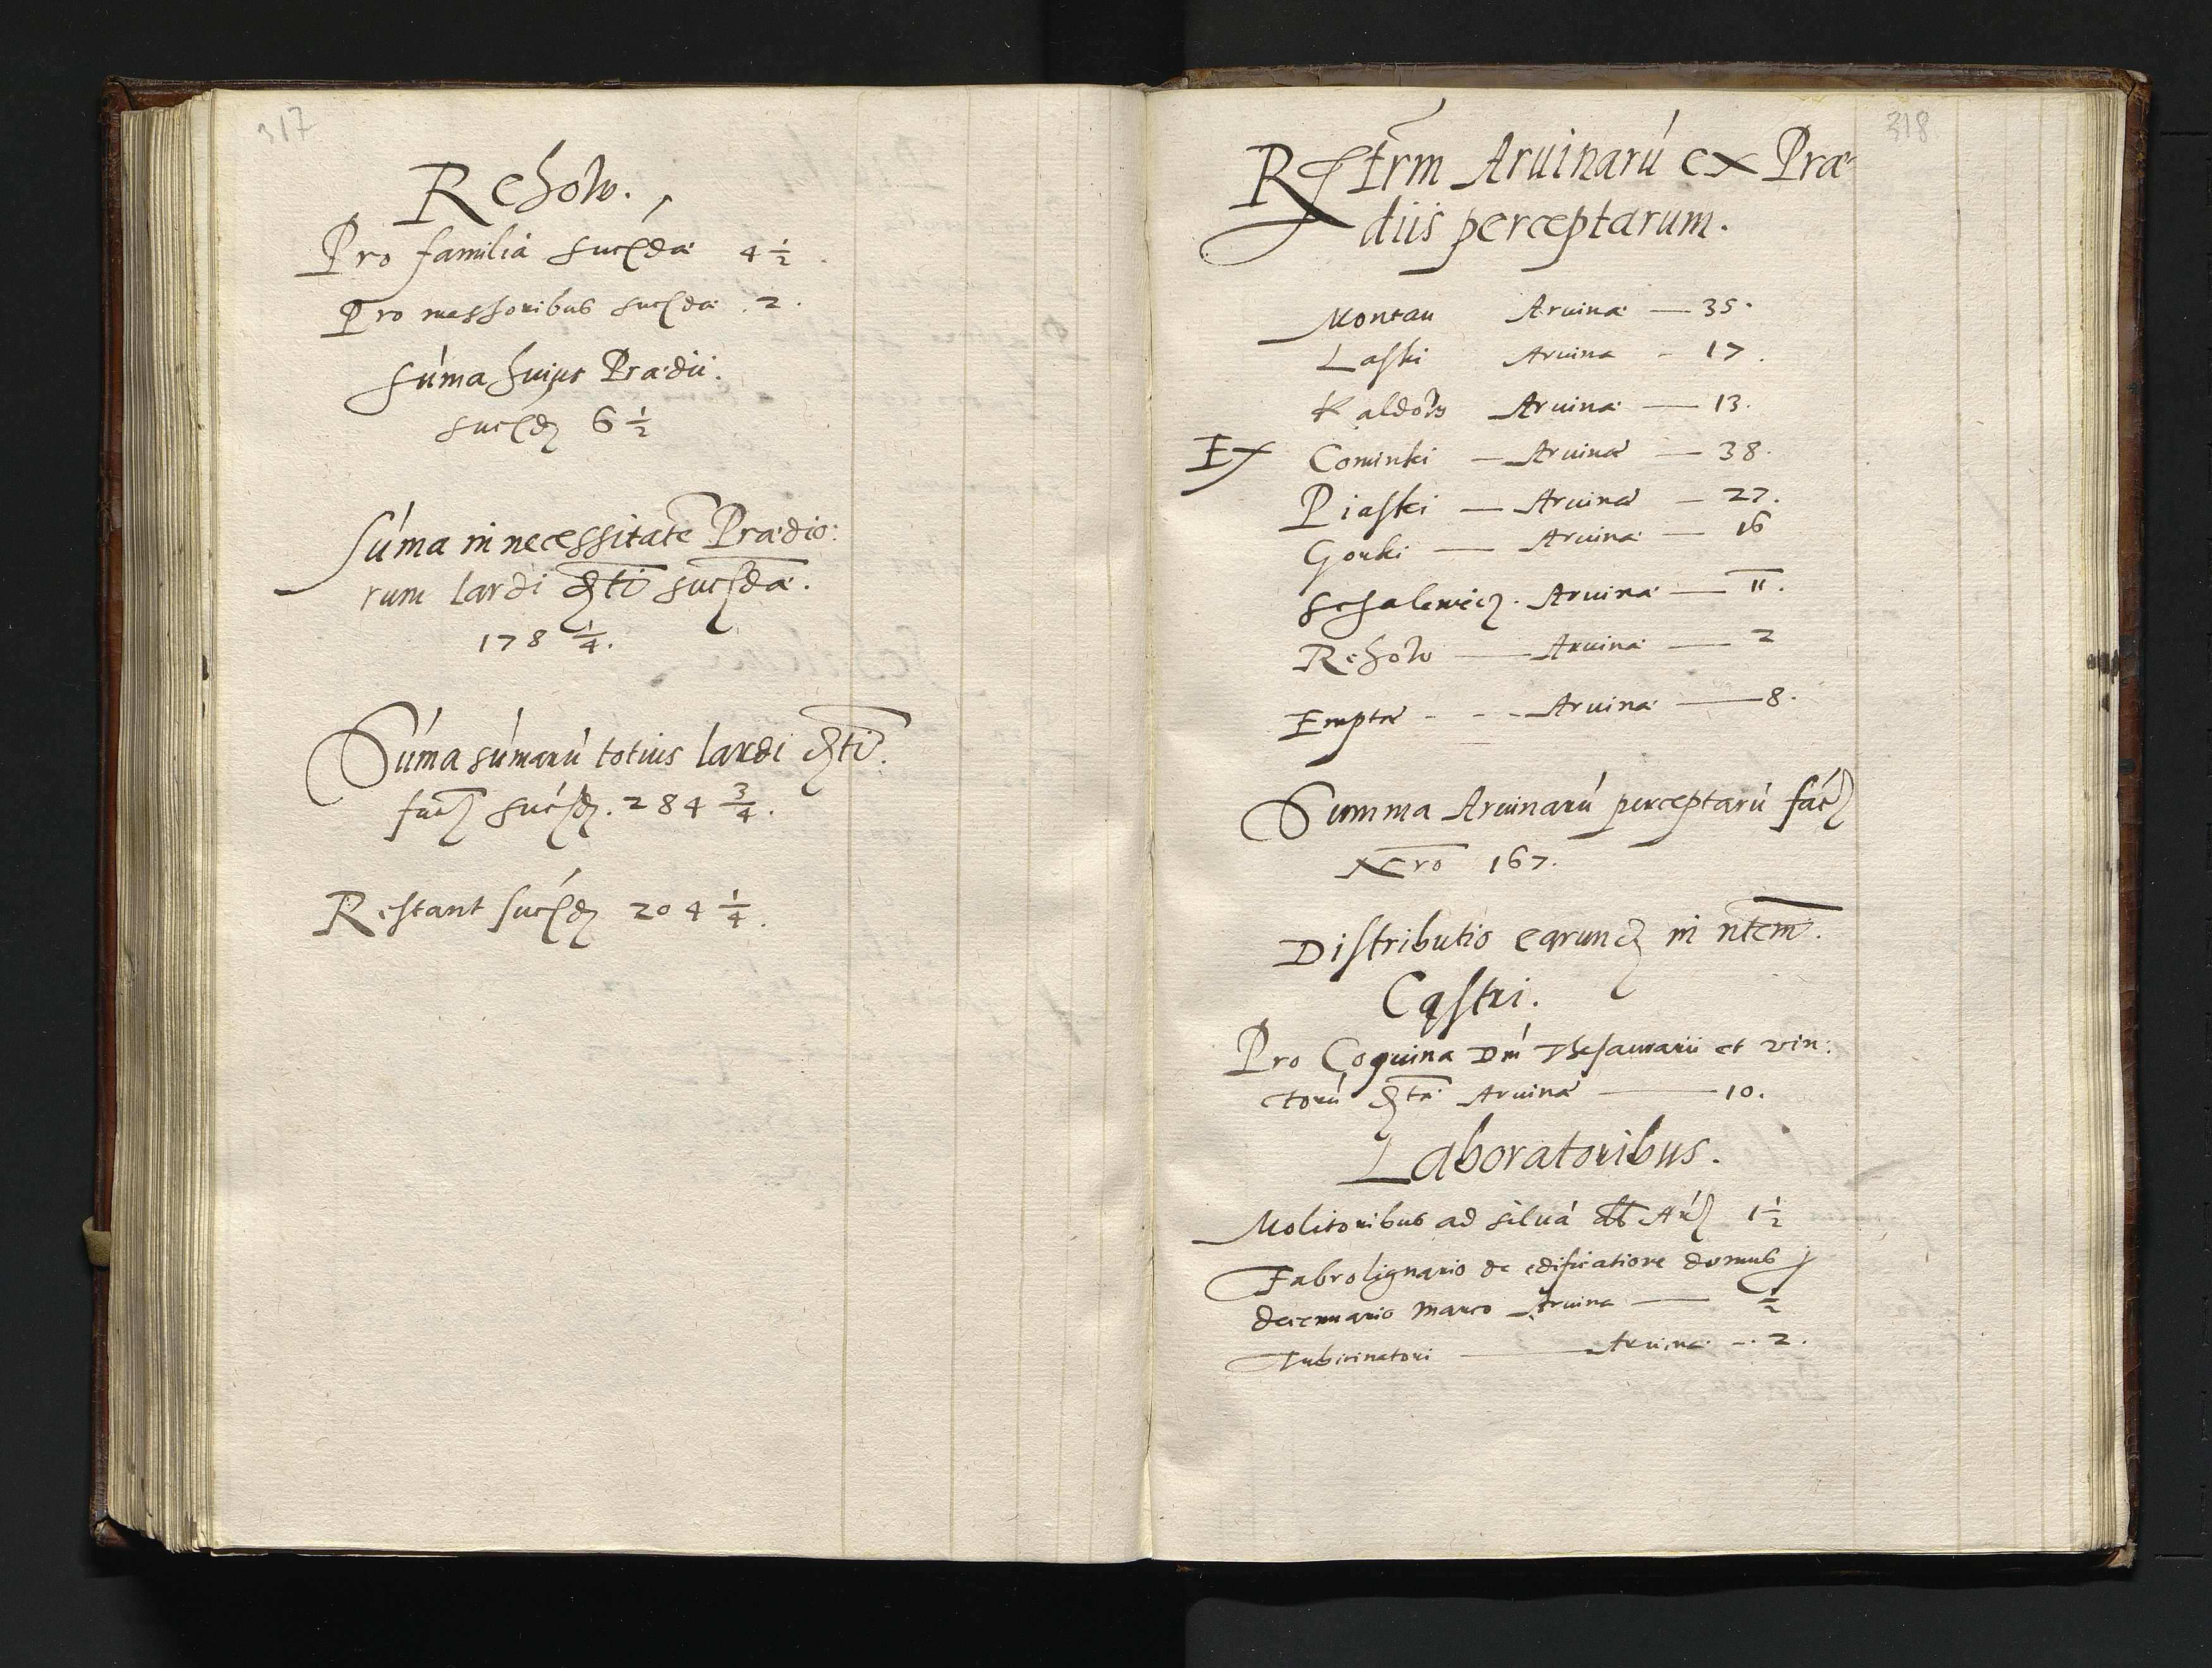 317
Rehow.
Pro familia succidæ 4 1/2.
Pro messoribus succidæ 2.
Súma huius Prædii.
succid 6 1/2
Súma in necessitatē Prædio:
rum lardi dti succidæ.
178 1/4.
Súma súmarú totius lardi dti
fac succid. 284 3/4.
Restant succid 204 1/4.
318
Rẽstrm Aruinarú ex Præ-
diis perceptarum.
Montau Aruinæ — 35.
Laski Aruinæ - 17.
Kaldow Aruinæ — 13.
Ex Cominki — Aruinæ — 38.
Piaski — Aruinæ — 27.
Gorki — Aruinæ — 16
Schalewicz. Aruinæ — 11.
Rehow — Aruinæ — 2
Emptæ - - - Aruinæ — 8.
Summa Aruinarú perceptarú fać
Nero 167.
Distributio earund in ntem.
Castri.
Pro Coquina Dni Thesaurarii et vin:
ctorú dta Aruinæ — 10.
Laboratoribus.
Molitoribus ad siluá 1 1/2
Fabrolignario de edificatione domus
decennario Marco Aruina — 1/2
Tubicinatori — Aruinæ - 2.